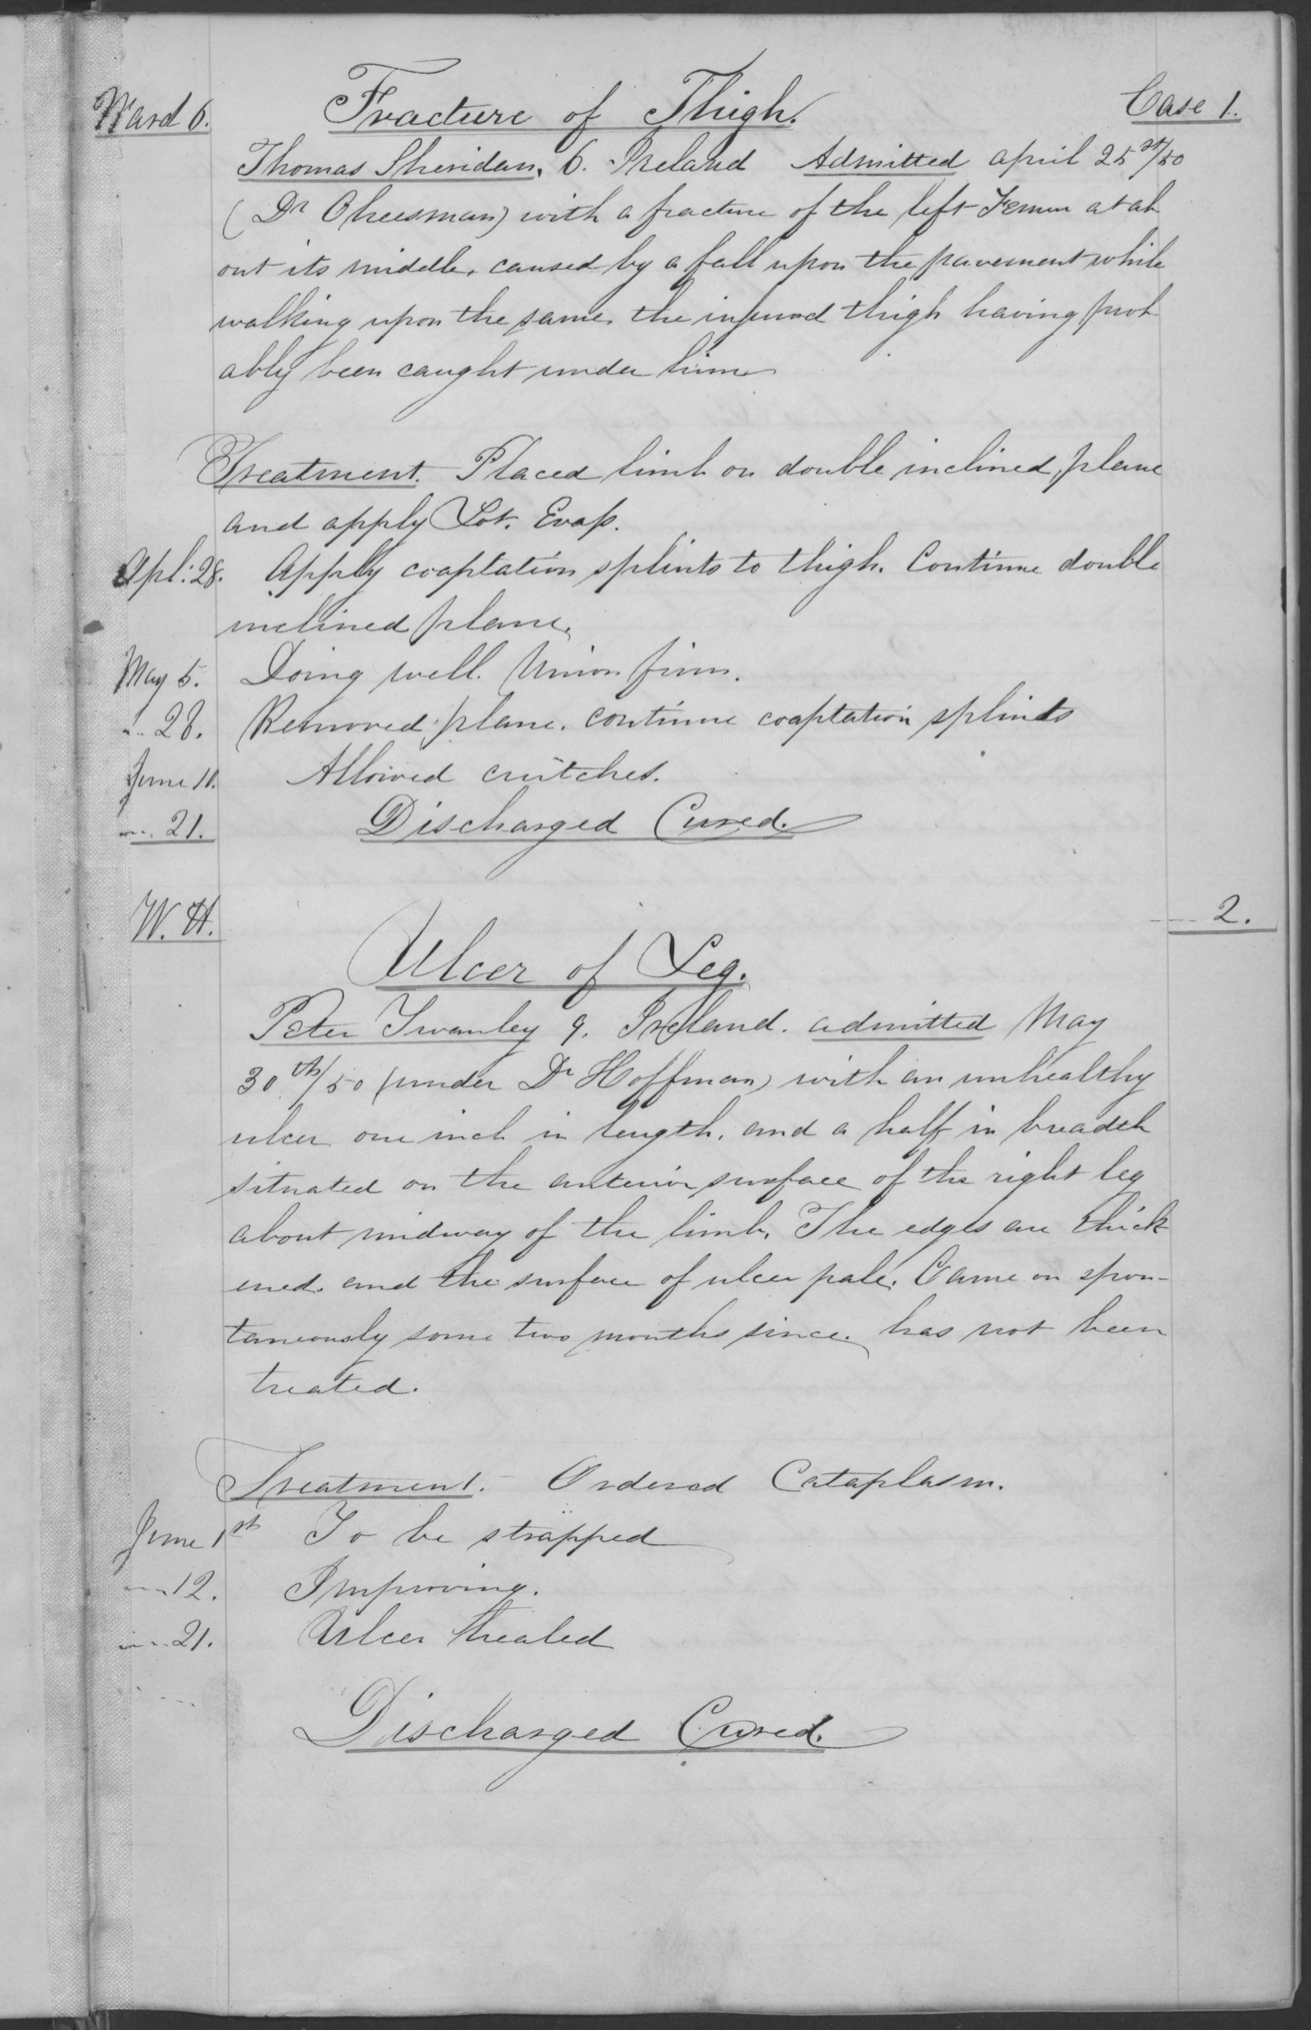 Ward 6. Fracture of Thigh. Case 1.
Thomas Sheridan, 6. Ireland Admitted april 25th/50
(Dr Cheesman) with a fracture of the left Femur at ab
out its middle, caused by a fall upon the pavement while
walking upon the same, the injured thigh having prob
ably been caught under him
Treatment. Placed limb on double inclined plane
and apply Lot. Evap.
Apl: 28. Apply coaptation splints to thigh. Continue double
inclined plane.
May 5. Doing well. Union firm.
" 28. Removed plane. continue coaptation splints
June 10. Allowed crutches.
" 21. Discharged Cured.
W. H. 2.
Ulcer of Leg.
Peter 9. Ireland. admitted May
30th/50 (under Dr Hoffman) with an unhealthy
ulcer one inch in length, and a half in breadth
situated on the anterior surface of the right leg
about midway of the limb. The edges are thick
ened. and the surface of ulcer pale. Came on spon-
taneously some two months since. has not been
treated.
Treatment. - Ordered Cataplasm.
June 1st To be strapped
" 12. Improving.
" 21. Ulcer healed
Discharged Cured.